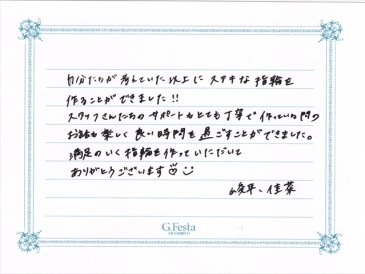 自分たちが考えていた以上にステキな指輪を
作ることができました!!
スタッフさんたちのサポートもとても丁寧で作っている間の
お話も楽しく良い時間を過ごすことができました。
満足のいく指輪を作っていただいて
ありがとうございます♡☺
峻平、佳菜
G.Festa